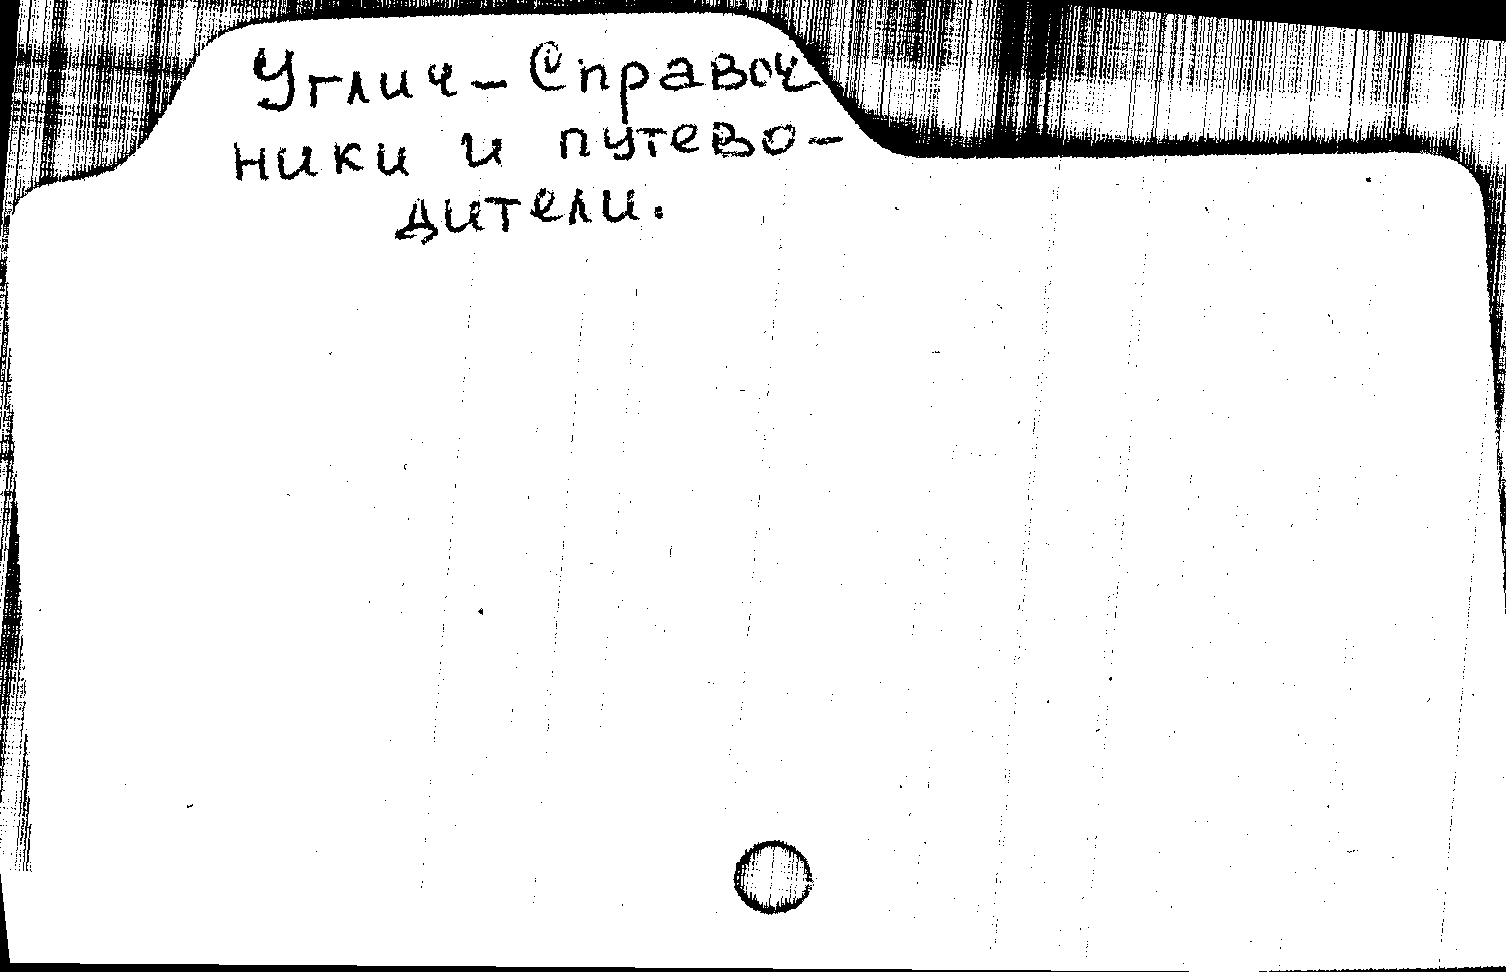 Углич - Справоч
ники и путево-
дители.